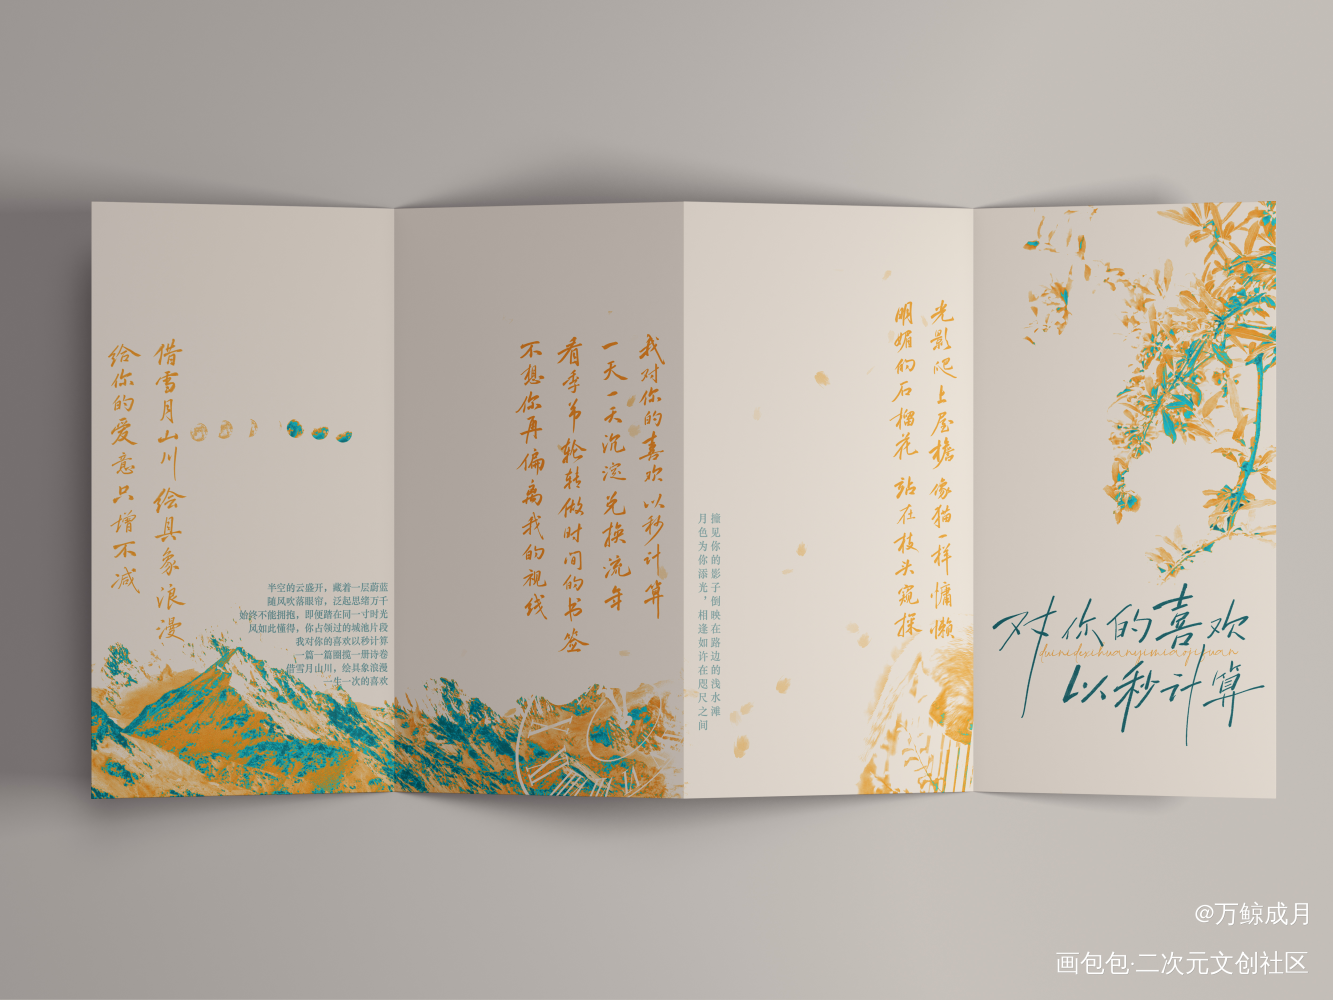 借雪月山川绘具象浪漫
给你的爱意只增不减
半空的云盛开，藏着一层蔚蓝
随风吹落眼帘，泛起思绪万千
始终不能拥抱，即便踏在同一寸时光
风如此懂得，你占领过的城池片段
我对你的喜欢以秒计算
一篇一篇圈揽一册诗卷
借雪月山川，绘具象浪漫
一生一次的喜欢
我对你的喜欢以秒计算
一天一天沉淀兑换流年
看季节轮转做时间的书签
不想你再偏离我的视线
撞见你的影子倒映在路边的浅水滩
月色为你添光，相逢如许在咫尺之间
光影爬上屋檐 像猫一样慵懒
明媚的石榴花 站在枝头窥探
对你的喜欢
duinidexihuanyimiaojisuan
以秒计算
@万鲸成月
画包包·二次元文创社区